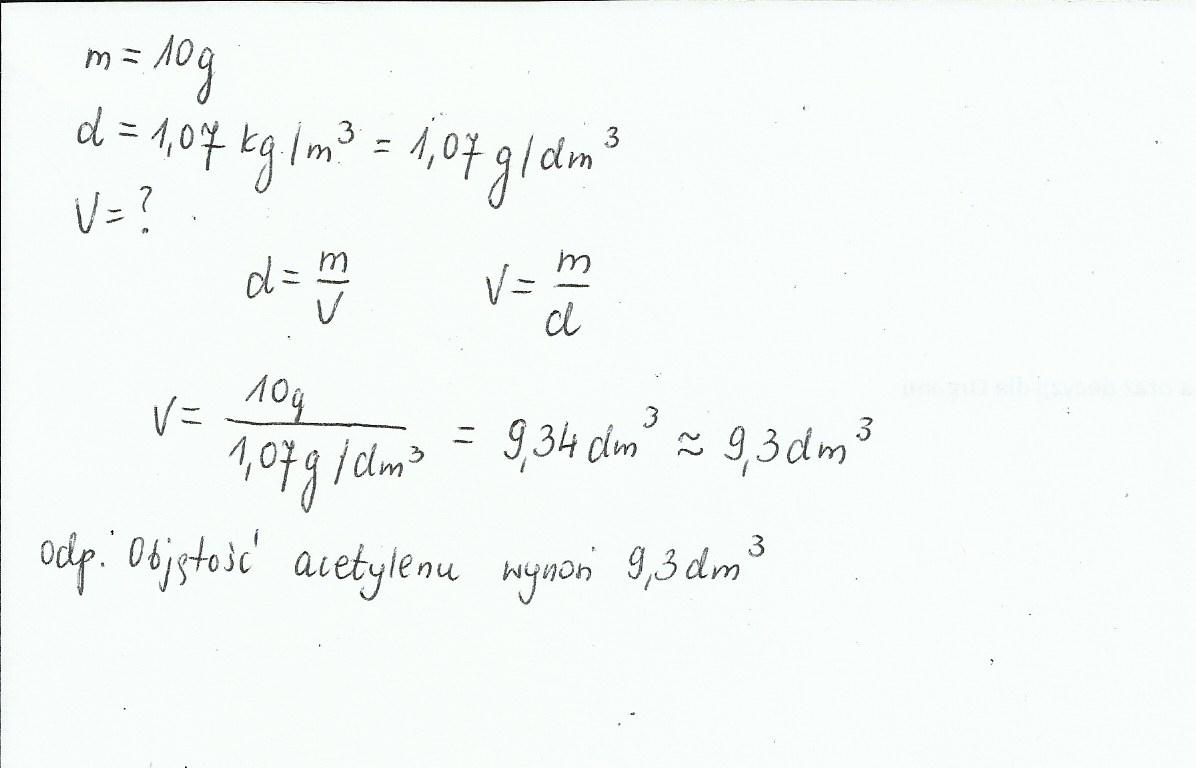 m = 10g
d = 1,07 kg/m³ = 1,07 g/dm³
V = ?
d = m/V V = m/d
V = 10g / 1,07g/dm³ = 9,34 dm³ ≈ 9,3 dm³
odp. Objętość acetylenu wynosi 9,3 dm³